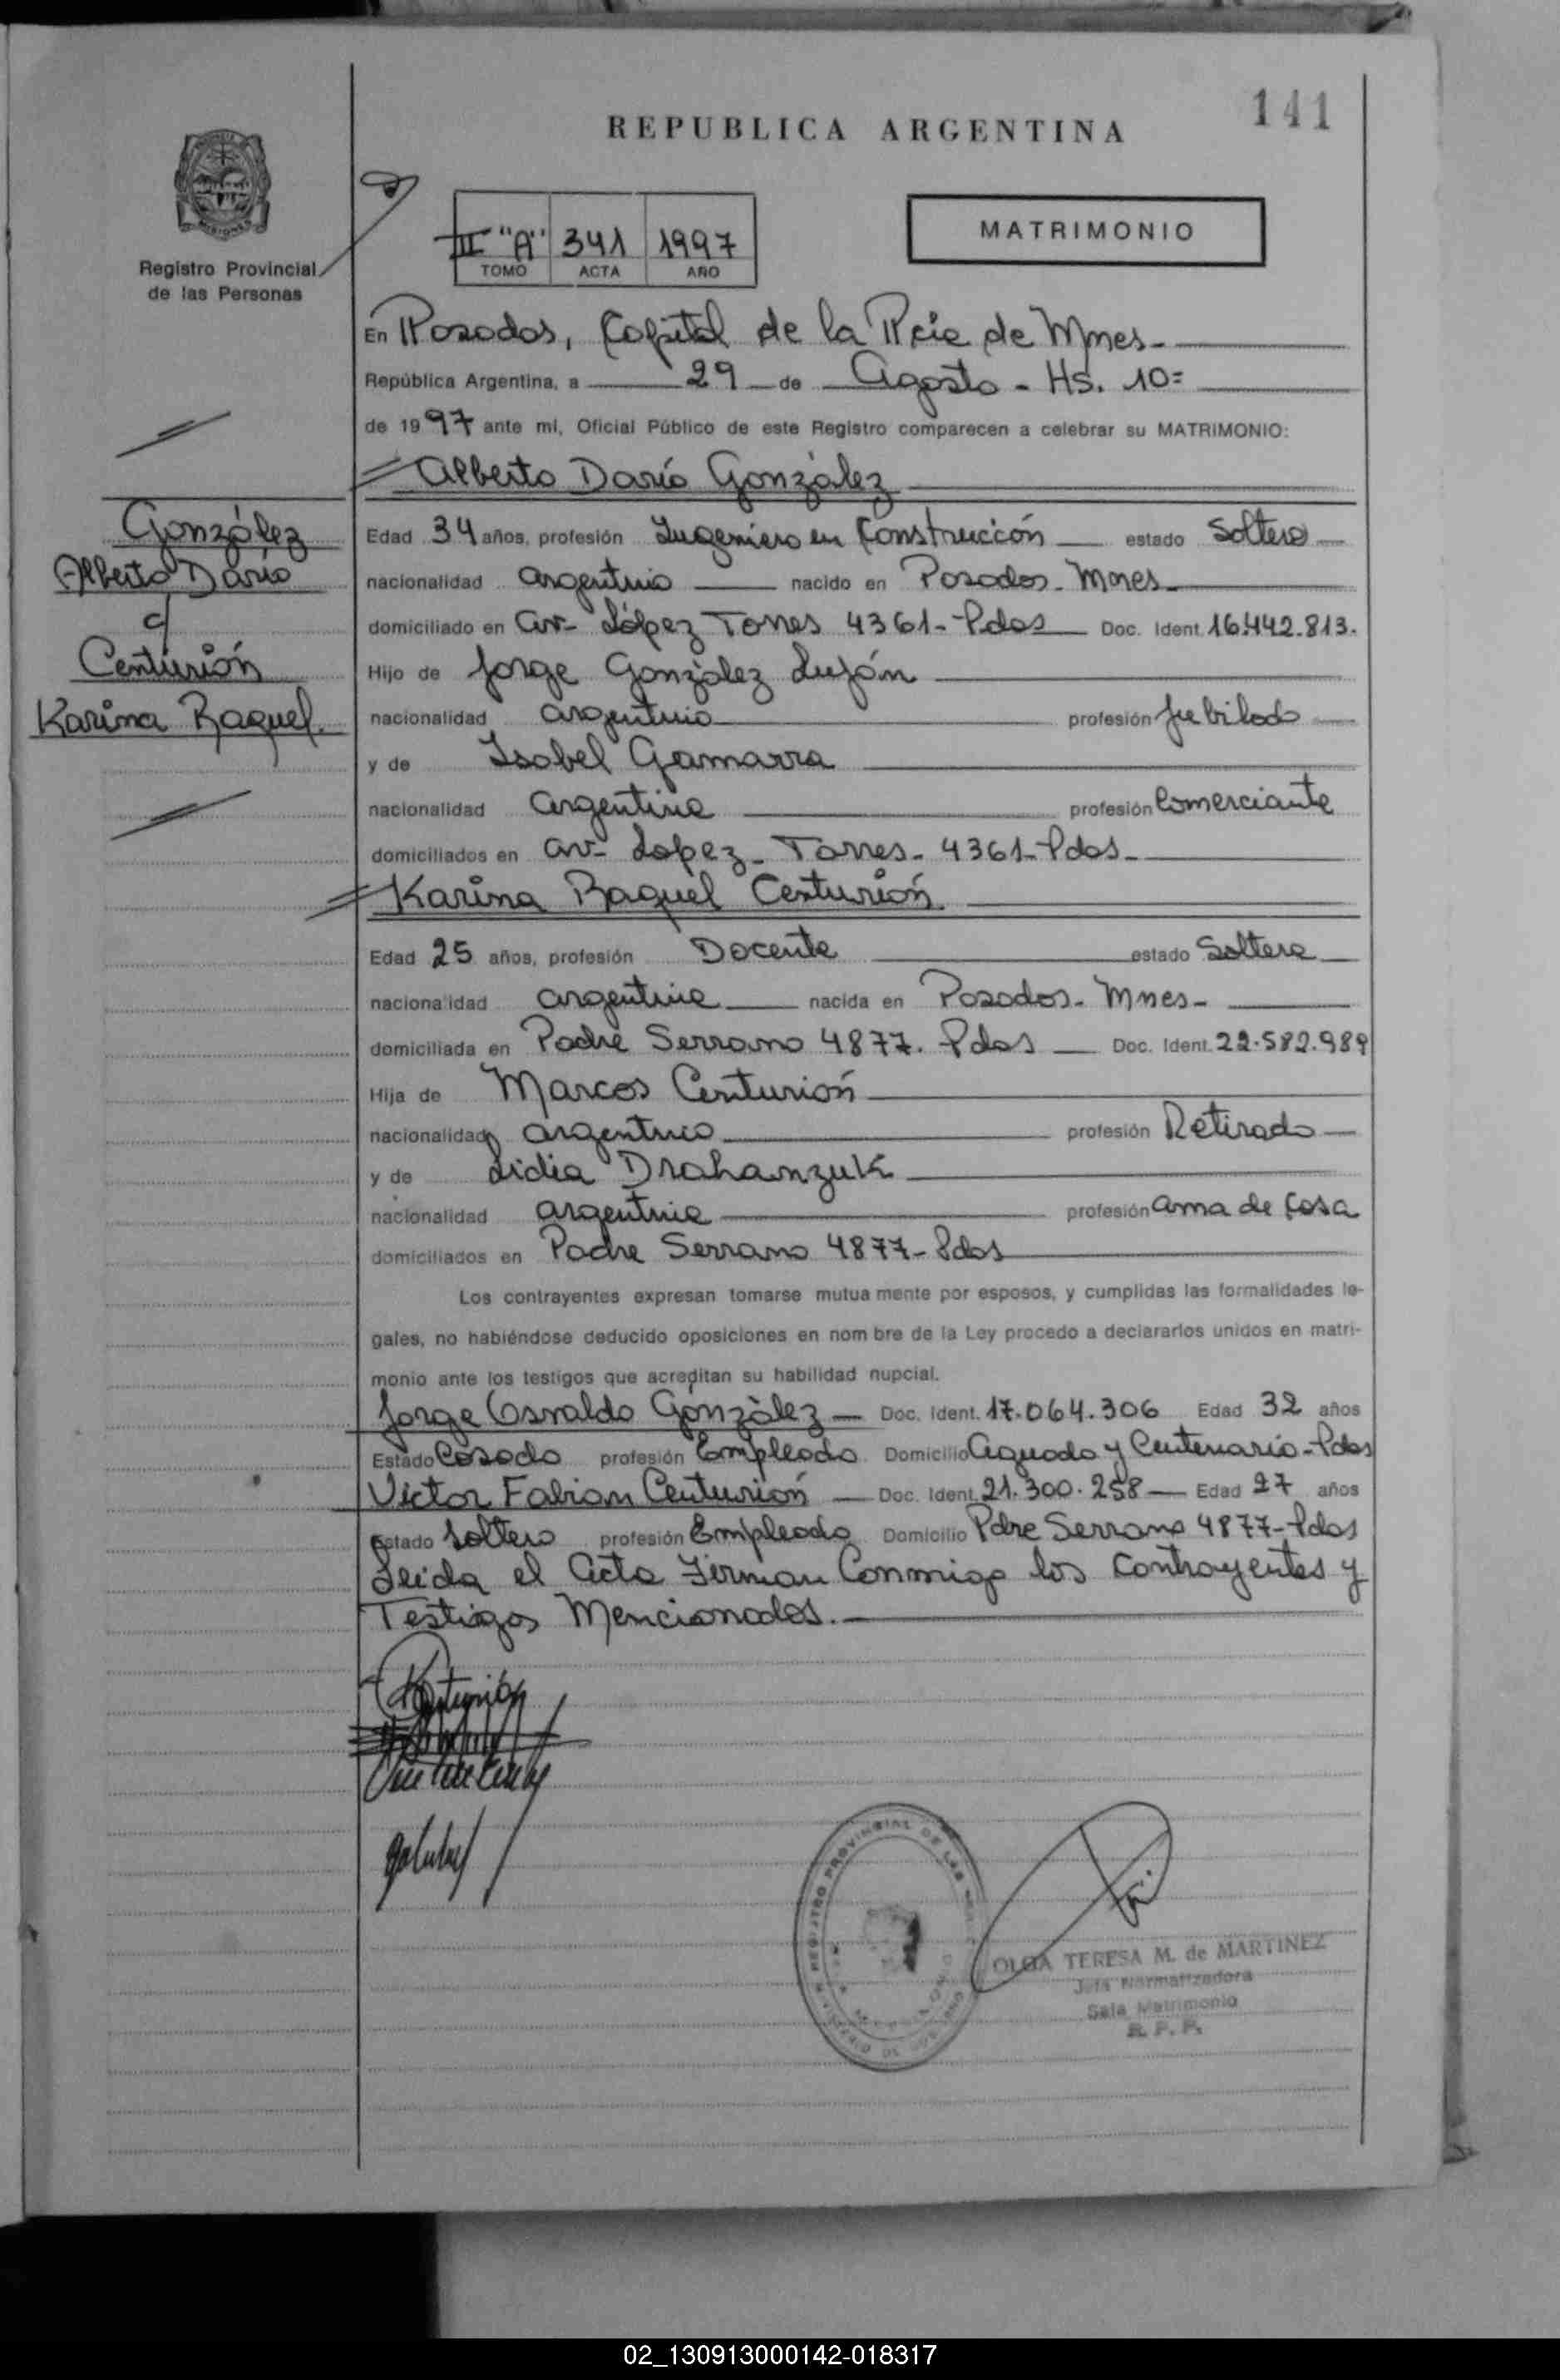 141
REPUBLICA ARGENTINA
Registro Provincial
de las Personas
II "A" 341 1997
TOMO ACTA AÑO
MATRIMONIO
En Posadas, Capital de la Pcia de Mnes-
República Argentina, a 29 de Agosto - Hs. 10=
de 1997 ante mi, Oficial Público de este Registro comparecen a celebrar su MATRIMONIO:
Alberto Darío González
González
Alberto Darío
c/
Centurión
Karina Raquel.
Edad 34 años, profesión Ingeniero en Construcción estado Soltero
nacionalidad argentino nacido en Posadas - Mnes
domiciliado en Av- López Torres 4361- Pdas Doc. Ident. 16.442.813.
Hijo de Jorge González Luján
nacionalidad argentino profesión Jubilado
y de Isabel Gamarra
nacionalidad argentina profesión Comerciante
domiciliados en Av- Lopez - Torres - 4361- Pdas-
Karina Raquel Centurión
Edad 25 años, profesión Docente estado Soltera
nacionalidad argentina nacida en Posadas - Mnes-
domiciliada en Padre Serrano 4877. Pdas Doc. Ident. 22.582.989
Hija de Marcos Centurión
nacionalidad argentino profesión Retirado
y de Lidia Drahanzuk
nacionalidad argentina profesión ama de casa
domiciliados en Padre Serrano 4877- Pdas
Los contrayentes expresan tomarse mutua mente por esposos, y cumplidas las formalidades le-
gales, no habiéndose deducido oposiciones en nom bre de la Ley procedo a declararlos unidos en matri-
monio ante los testigos que acreditan su habilidad nupcial.
Jorge Osvaldo González - Doc. Ident. 17.064.306 Edad 32 años
Estado Casado profesión Empleado Domicilio Aguado y Centenario - Pdas
Victor Fabian Centurión - Doc. Ident. 21.300.258 - Edad 27 años
Estado Soltero profesión Empleado Domicilio Pdre Serrano 4877- Pdas
Leida el Acta Firman Conmigo los Contrayentes y
Testigos Mencionados.
REGISTRO PROVINCIAL DE LAS
OLGA TERESA M. de MARTINEZ
Jefa Normatizadora
Sala Matrimonio
R. P. P.
02_130913000142-018317